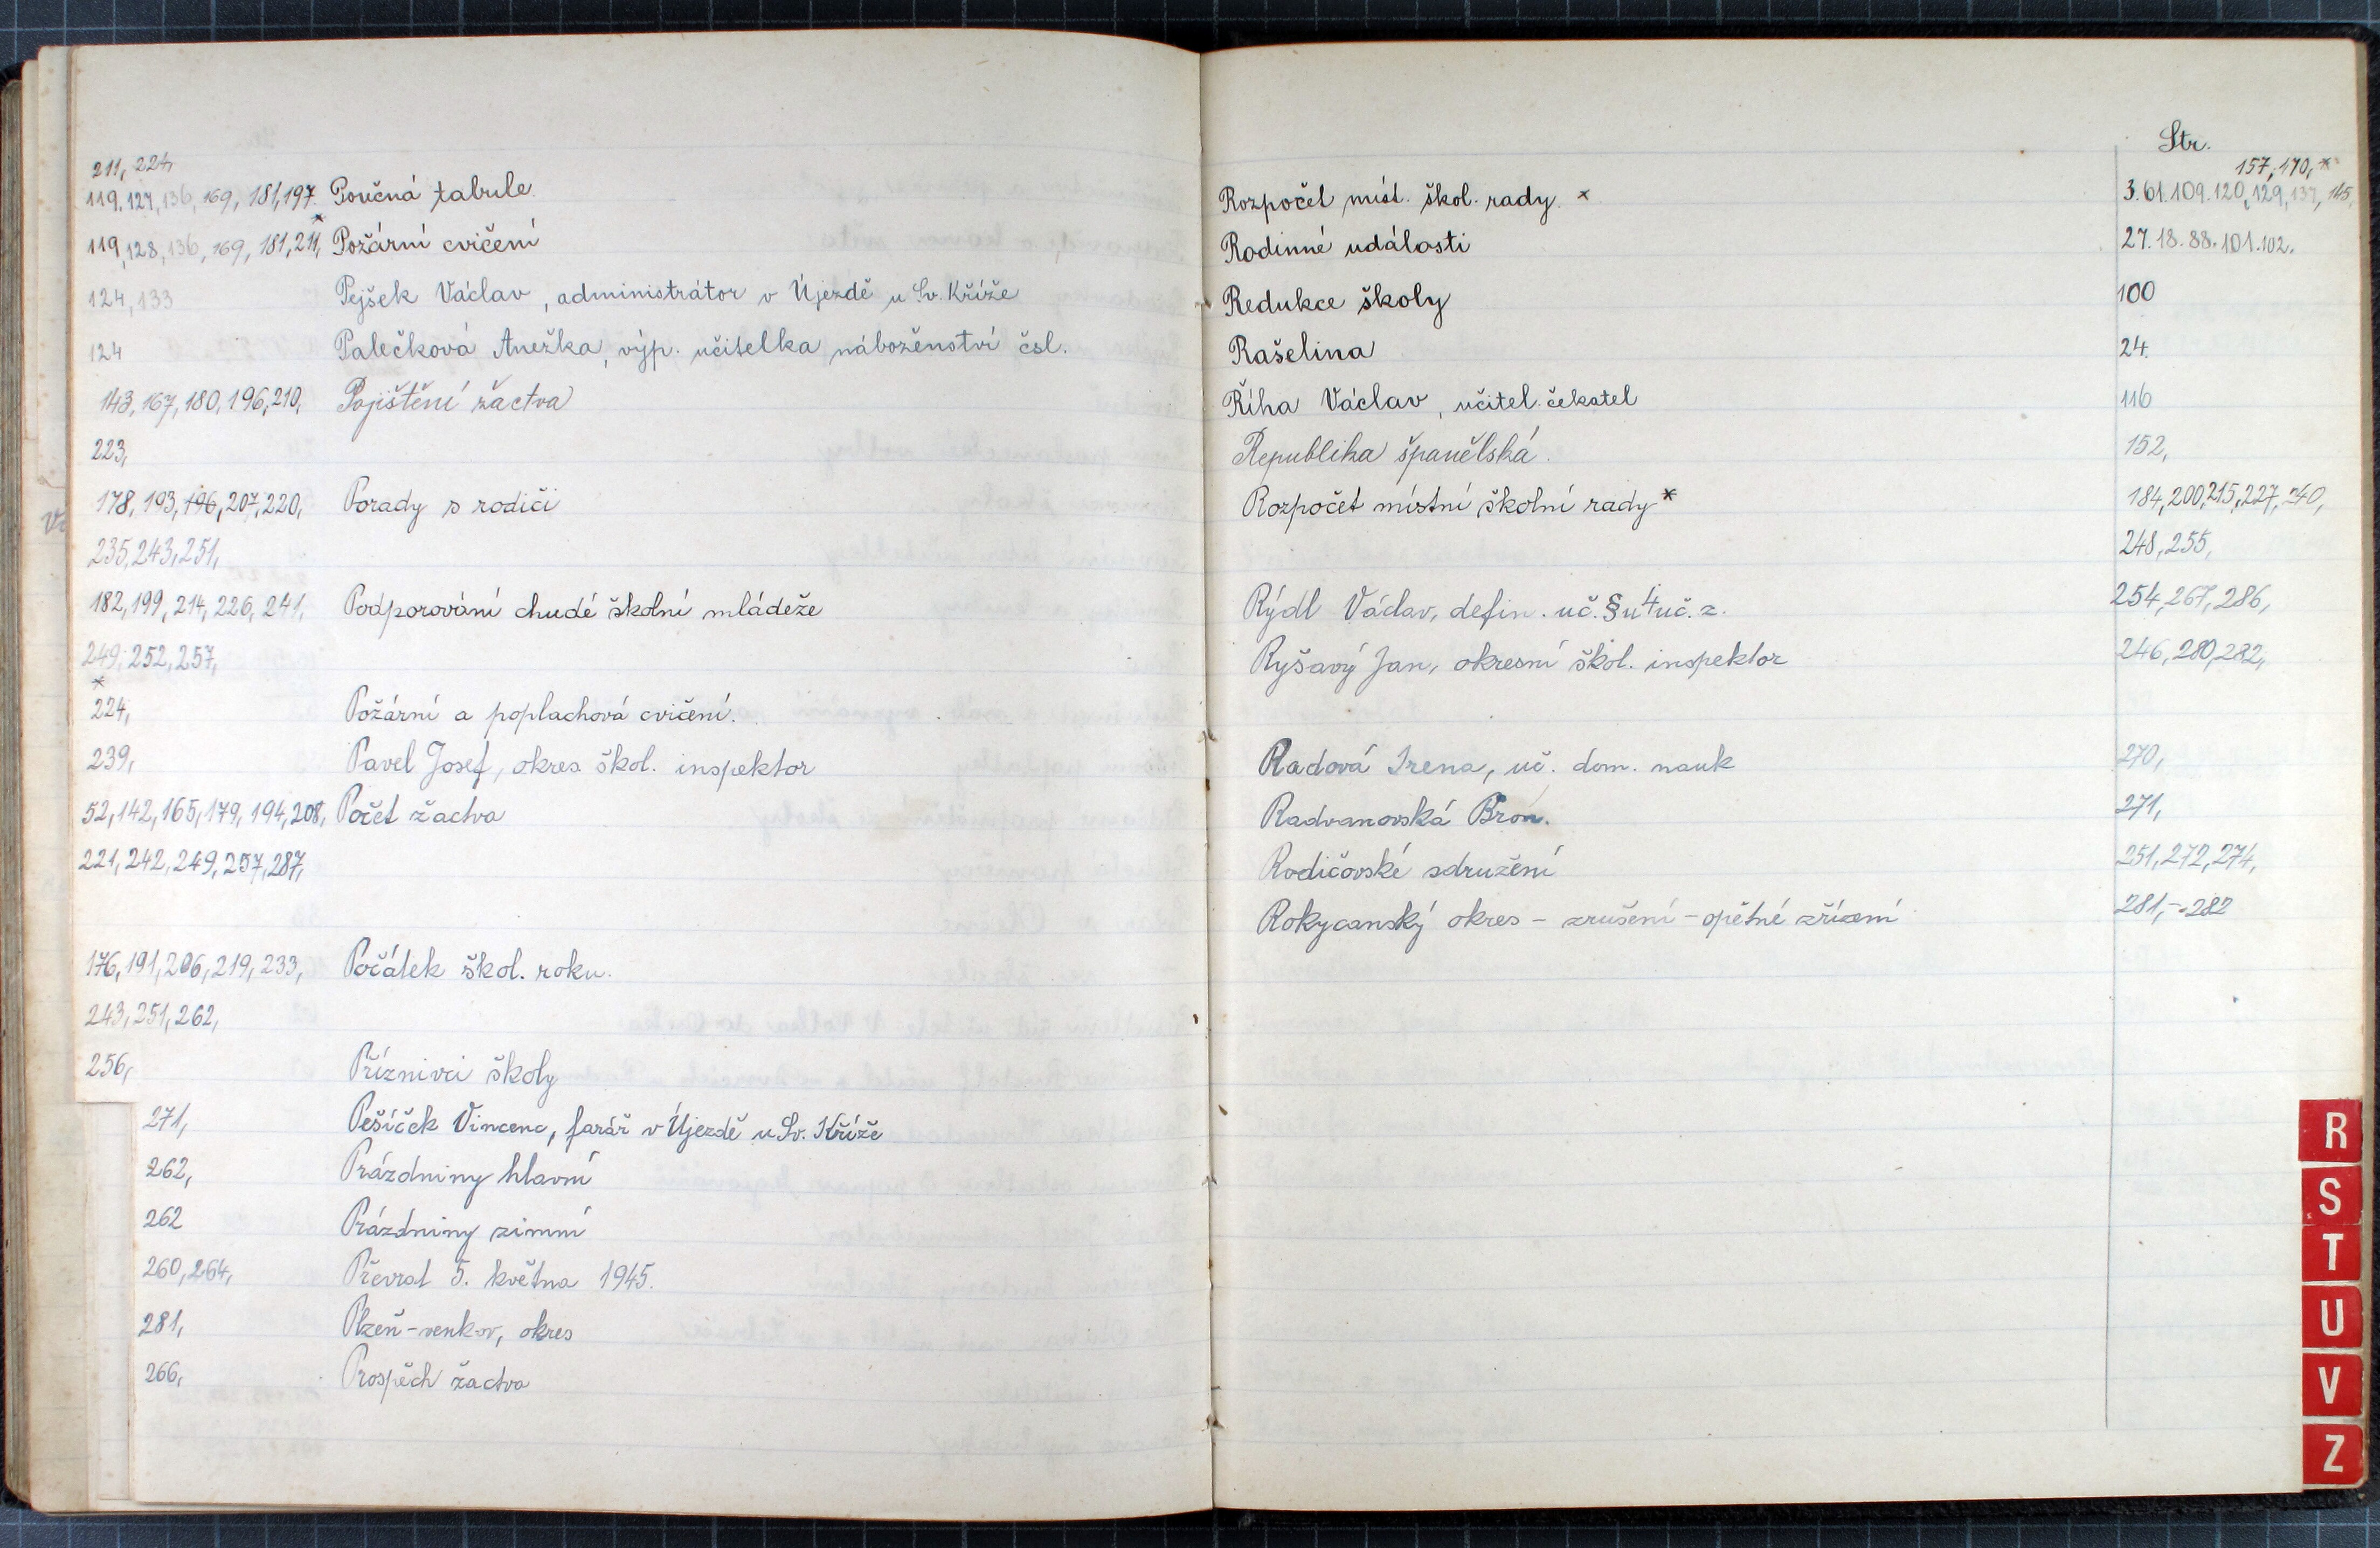 211, 224,
119. 127, 136, 169, 181, 197. Poučná tabule.
119, 128, 136, 169, 181, 211,* Požární cvičení
124, 133 Pejšek Václav, administrátor v Újezdě u Sv. Kříže
124 Palečková Anežka, výp. učitelka náboženství čsl.
143, 167, 180, 196, 210, Pojištění žactva
223,
178, 193, 196, 207, 220, Porady s rodiči
235, 243, 251,
182, 199, 214, 226, 241, Podporování chudé školní mládeže
249, 252, 257,
*
224, Požární a poplachová cvičení.
239, Pavel Josef, okres. škol. inspektor
52, 142, 165, 179, 194, 208, Počet žactva
221, 242, 249, 257, 287,
176, 191, 206, 219, 233, Počátek škol. roku.
243, 251, 262,
256, Příznivci školy
271, Pešíček Vincenc, farář v Újezdě u Sv. Kříže
262, Prázdniny hlavní
262 Prázdniny zimní
260, 264, Převrat 5. května 1945.
281, Plzeň-venkov, okres
266, Prospěch žactva
Str.
157, 170, *
Rozpočet míst. škol. rady. * 3. 61. 109. 120, 129, 137, 145,
Rodinné události 27. 18. 88. 101. 102.
Redukce školy 100
Rašelina 24.
Říha Václav, učitel. čekatel 116
Republika španělská. 152,
Rozpočet místní školní rady * 184, 200, 215, 227, 240,
248, 255,
Rýdl Václav, defin. uč. § u 4 uč. z. 254, 267, 286,
Ryšavý Jan, okresní škol. inspektor 246, 280, 282,
Radová Irena, uč. dom. nauk 270,
Radvanovská Bron. 271,
Rodičovské sdružení 251, 272, 274,
Rokycanský okres - zrušení - opětné zřízení 281, - 282
R
S
T
U
V
Z